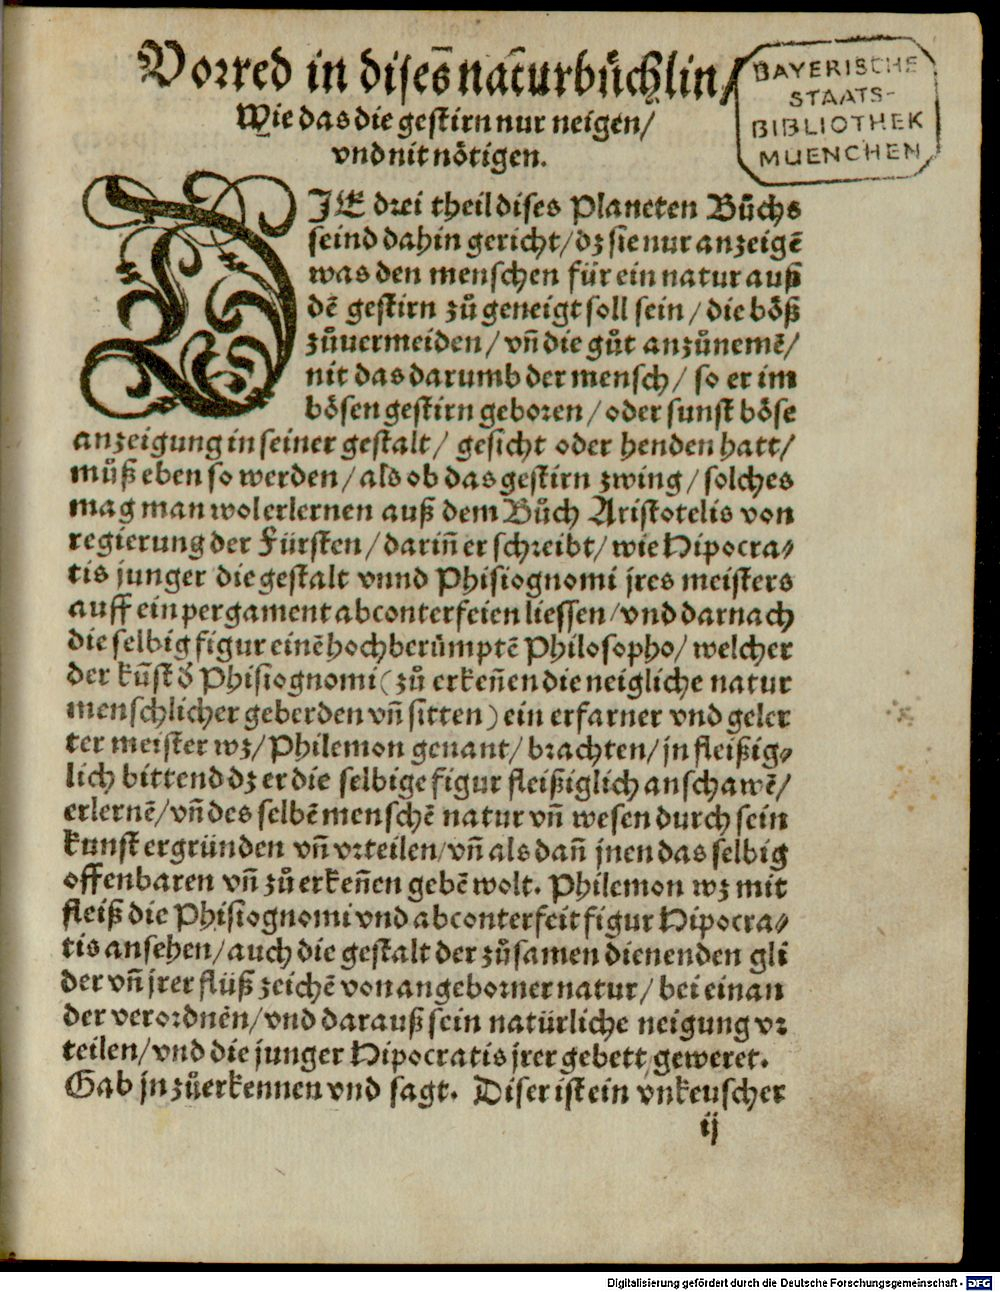 Vorred in dises̄ nat̄urbůchlin/
Wie das die gestirn nur neigen/
vnd nit nötigen.
BAYERISCHE
STAATS-
BIBLIOTHEK
MUENCHEN
DIE drei theil dises Planeten Bůchs
seind dahin gericht/dz sie nur anzeigē
was den menschen für ein natur auß
dē gestirn zů geneigt soll sein/die böß
zůuermeiden/vn̄ die gůt anzůnemē/
nit das darumb der mensch/so er im
bösen gestirn geboren/oder sunst böse
anzeigung in seiner gestalt/gesicht oder henden hatt/
můß eben so werden/als ob das gestirn zwing/solches
mag man wol erlernen auß dem Bůch Aristotelis von
regierung der Fürsten/darin̄ er schreibt/wie Hipocra/
tis junger die gestalt vnnd Phisiognomi jres meisters
auff ein pergament abconterfeien liessen/vnd darnach
die selbig figur einē hochberümptē Philosopho/welcher
der kūst d̕ Phisiognomi (zů erken̄en die neigliche natur
menschlicher geberden vn̄ sitten) ein erfarner vnd geler
ter meister wz/Philemon genant/brachten/jn fleißig/
lich bittend dz er die selbige figur fleißiglich anschawē/
erlernē/vn̄ des selbē menschē natur vn̄ wesen durch sein
kunst ergründen vn̄ vrteilen/vn̄ als dan̄ jnen das selbig
offenbaren vn̄ zů erken̄en gebē wolt. Philemon wz mit
fleiß die Phisiognomi vnd abconterfeit figur Hipocra/
tis ansehen/auch die gestalt der zůsamen dienenden gli
der vn̄ jrer flüß zeichē von angeborner natur/bei einan
der verordnēn/vnd darauß sein natürliche neigung vr
teilen/vnd die junger Hipocratis jrer gebett/geweret.
Gab jn zůerkennen vnd sagt. Diser ist ein vnkeuscher
ij
Digitalisierung gefördert durch die Deutsche Forschungsgemeinschaft - DFG